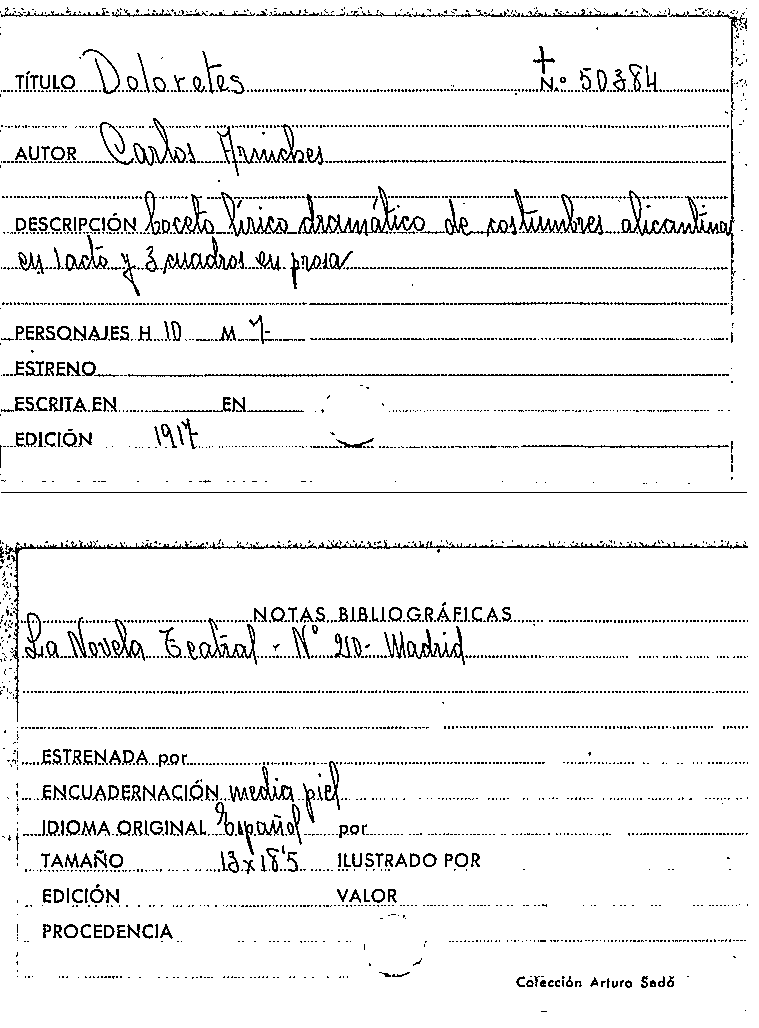 TÍTULO Doloretes + N.º 50384
AUTOR Carlos Arniches
DESCRIPCIÓN boceto lírico dramático de costumbres alicantina
en 1 acto y 3 cuadros en prosa
PERSONAJES H 10 M 7
ESTRENO
ESCRITA EN EN
EDICIÓN 1917
NOTAS BIBLIOGRÁFICAS
La Novela Teatral - Nº 210 - Madrid
ESTRENADA por
ENCUADERNACIÓN media piel
IDIOMA ORIGINAL Español por
TAMAÑO 13x18'5 ILUSTRADO POR
EDICIÓN VALOR
PROCEDENCIA
Colección Arturo Sedó